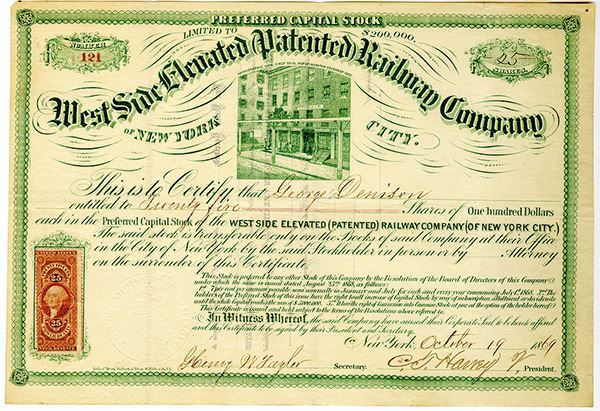 PREFERRED CAPITAL STOCK
LIMITED TO $200,000.
NUMBER
121
25
SHARES.
West Side Elevated (Patented) Railway Company
OF NEW YORK CITY.
This is to Certify that George Denison
entitled to Twenty five Shares of One hundred Dollars
each in the Preferred Capital Stock of the WEST SIDE ELEVATED (PATENTED) RAILWAY COMPANY (OF NEW YORK CITY.)
The said stock is transferable only on the Books of said Company at their Office
in the City of New York by the said Stockholder in person or by Attorney
on the surrender of this Certificate.
This Stock is preferred to any other Stock of this Company by the Resolution of the Board of Directors of this Company
under which the same is issued dated August 25th 1868, as follows
1st 7 per cent per annum payable semi annually in January and July for each and every year commencing July 1st 1868. 2nd The
holders of the Preferred Stock of this issue have the right to all increase of Capital Stock by way of subscription, allotment or dividends
This Certificate is issued and held subject to the terms of the Resolutions above referred to.
In Witness Whereof, the said Company have caused their Corporate Seal to be hereto affixed
and this Certificate to be signed by their President and Secretary.
New York, October 19 1869
Henry W Taylor Secretary. C. T. Harvey President.
25
25